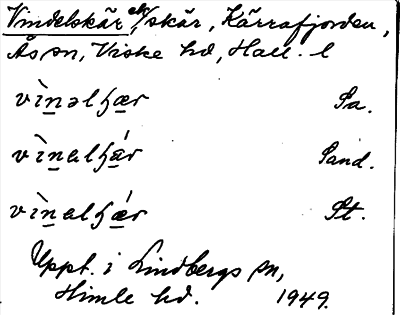 Vindelskär el. /skär, Kärrafjorden,
Ås sn, Viske hd, Hall. l
vìnəlʃær Sa.
vìnəlʃǽr Sand.
vìnəlʃǽr St.
Uppt. i Lindbergs sn,
Himle hd. 1949.